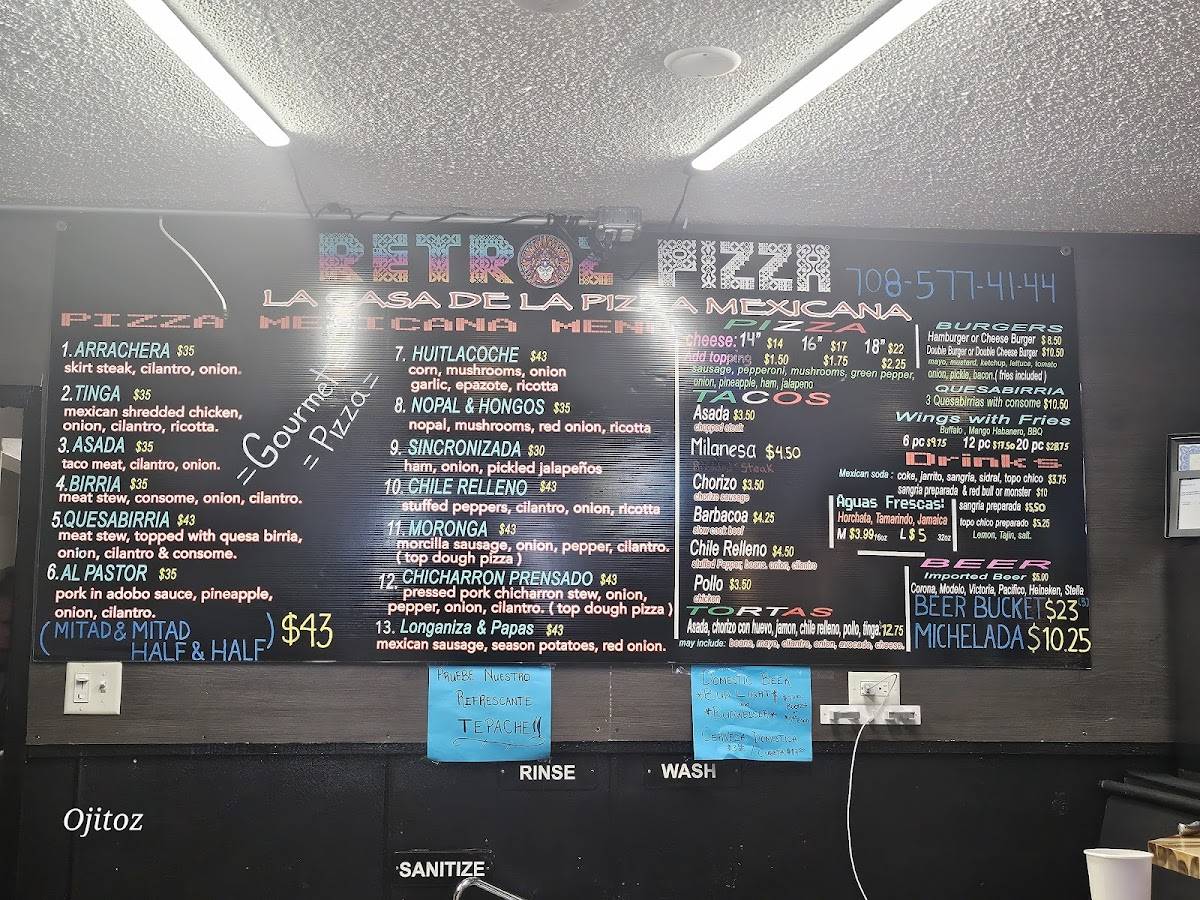 RETROZ PIZZA 708-577-41-44
LA CASA DE LA PIZZA MEXICANA
PIZZA MEXICANA MENU
1.ARRACHERA $35
skirt steak, cilantro, onion.
2.TINGA $35
mexican shredded chicken,
onion, cilantro, ricotta.
3.ASADA $35
taco meat, cilantro, onion.
4.BIRRIA $35
meat stew, consome, onion, cilantro.
5.QUESABIRRIA $43
meat stew, topped with quesa birria,
onion, cilantro & consome.
6.AL PASTOR $35
pork in adobo sauce, pineapple,
onion, cilantro.
(MITAD & MITAD
HALF & HALF) $43
=Gourmet
= Pizza=
7. HUITLACOCHE $43
corn, mushrooms, onion
garlic, epazote, ricotta
8. NOPAL & HONGOS $35
nopal, mushrooms, red onion, ricotta
9. SINCRONIZADA $30
ham, onion, pickled jalapeños
10. CHILE RELLENO $43
stuffed peppers, cilantro, onion, ricotta
11. MORONGA $43
morcilla sausage, onion, pepper, cilantro.
( top dough pizza )
12. CHICHARRON PRENSADO $43
pressed pork chicharron stew, onion,
pepper, onion, cilantro. ( top dough pizza )
13. Longaniza & Papas $43
mexican sausage, season potatoes, red onion.
PIZZA
cheese: 14" $14 16" $17 18" $22
Add topping $1.50 $1.75 $2.25
sausage, pepperoni, mushrooms, green pepper,
onion, pineapple, ham, jalapeno
TACOS
Asada $3.50
chopped steak
Milanesa $4.50
Breaded Steak
Chorizo $3.50
chorizo sausage
Barbacoa $4.25
slow cook beef
Chile Relleno $4.50
stuffed Pepper, beans, onion, cilantro
Pollo $3.50
chicken
TORTAS
Asada, chorizo con huevo, jamon, chile relleno, pollo, tinga: 12.75
may include: beans, mayo, cilantro, onion, avocado, cheese.
BURGERS
Hamburger or Cheese Burger $ 8.50
Double Burger or Double Cheese Burger $10.50
mayo, mustard, ketchup, lettuce, tomato
onion, pickle, bacon.( fries included )
QUESABIRRIA
3 Quesabirrias with consome $10.50
Wings with Fries
Buffalo , Mango Habanero, BBQ
6 pc $9.75 12 pc $17.50 20 pc
Drinks
Mexican soda : coke, jarrito, sangria, sidral, topo chico $3.75
sangria preparada & red bull or monster $10
Aguas Frescas:
Horchata, Tamarindo, Jamaica
M $3.99 16oz L $ 5 32oz
sangria preparada $5.50
topo chico preparado $5.25
Lemon, Tajin, salt.
BEER
Imported Beer $5.00
Corona, Modelo, Victoria, Pacifico, Heineken, Stella
BEER BUCKET $23 (5)
MICHELADA $10.25
PRUEBE NUESTRO
REFRESCANTE
TEPACHE!!
DOMESTIC BEER
*BUD LIGHT
*BUDWEISER*
CERVEZA DOMESTICA
RINSE
WASH
SANITIZE
Ojitoz